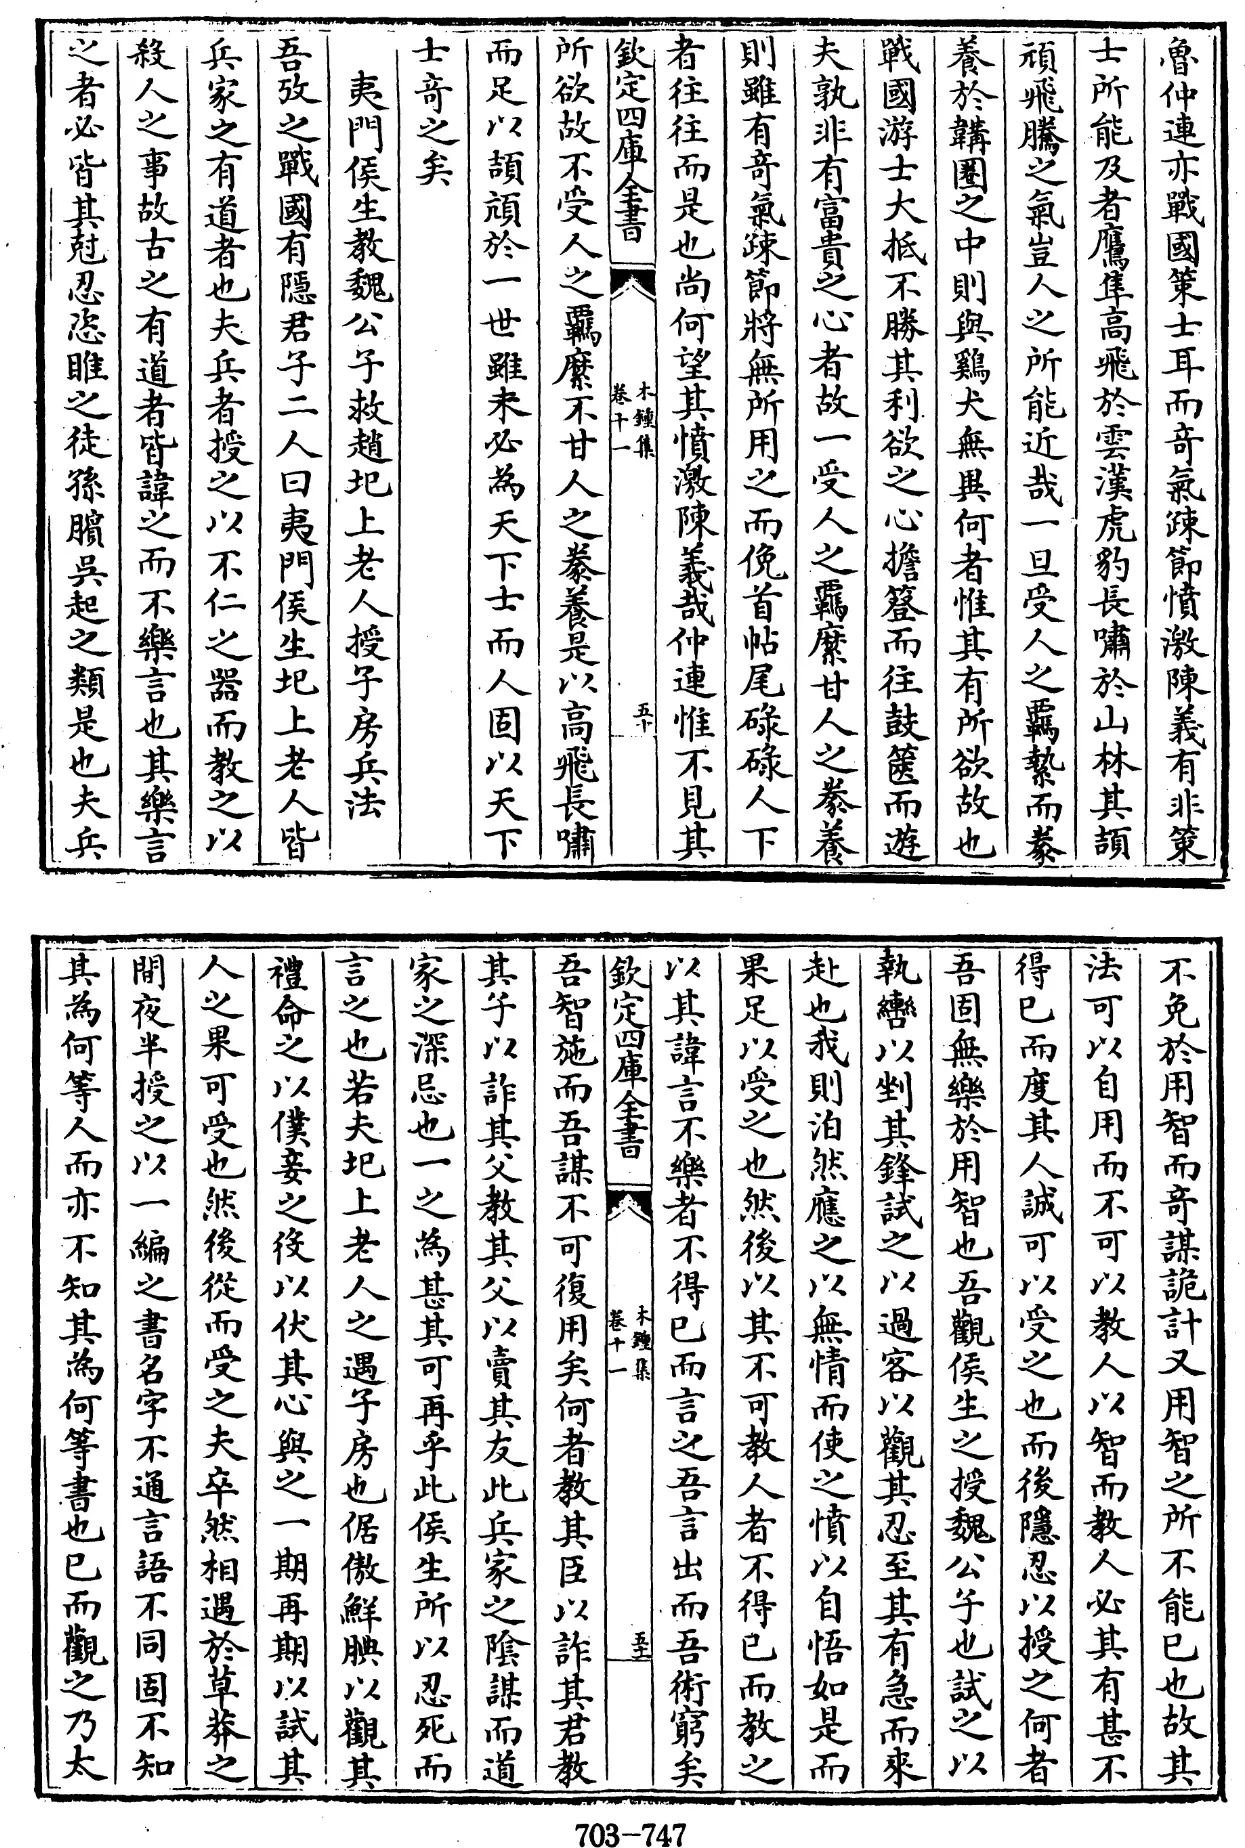 魯仲連亦戰國策士耳而奇氣疎節憤激陳義有非策
士所能及者鷹隼高飛於雲漢虎豹長嘯於山林其頡
頏飛騰之氣豈人之所能近哉一旦受人之羈縶而豢
養於韝圈之中則與鷄犬無異何者惟其有所欲故也
戰國游士大抵不勝其利欲之心擔簦而往鼓篋而遊
夫孰非有富貴之心者故一受人之羈縻甘人之豢養
則雖有奇氣疎節將無所用之而俛首帖尾碌碌人下
者往往而是也尚何望其憤激陳義哉仲連惟不見其
欽定四庫全書
木鍾集
卷十一
五十
所欲故不受人之羈縻不甘人之豢養是以高飛長嘯
而足以頡頏於一世雖未必為天下士而人固以天下
士奇之矣
夷門侯生教魏公子救趙圯上老人授子房兵法
吾攷之戰國有隱君子二人曰夷門侯生圯上老人皆
兵家之有道者也夫兵者授之以不仁之器而教之以
殺人之事故古之有道者皆諱之而不樂言也其樂言
之者必皆其尅忍恣睢之徒孫臏吳起之類是也夫兵
不免於用智而奇謀詭計又用智之所不能已也故其
法可以自用而不可以教人以智而教人必其有甚不
得已而度其人誠可以受之也而後隱忍以授之何者
吾固無樂於用智也吾觀侯生之授魏公子也試之以
執轡以剉其鋒試之以過客以觀其忍至其有急而來
赴也我則泊然應之以無情而使之憤以自悟如是而
果足以受之也然後以其不可教人者不得已而教之
以其諱言不樂者不得已而言之吾言出而吾術窮矣
欽定四庫全書
木鍾集
卷十一
五十一
吾智施而吾謀不可復用矣何者教其臣以詐其君教
其子以詐其父教其父以賣其友此兵家之陰謀而道
家之深忌也一之為甚其可再乎此侯生所以忍死而
言之也若夫圯上老人之遇子房也倨傲鮮腆以觀其
禮命之以僕妾之役以伏其心與之一期再期以試其
人之果可受也然後從而受之夫卒然相遇於草莽之
間夜半授之以一編之書名字不通言語不同固不知
其為何等人而亦不知其為何等書也已而觀之乃太
703-747